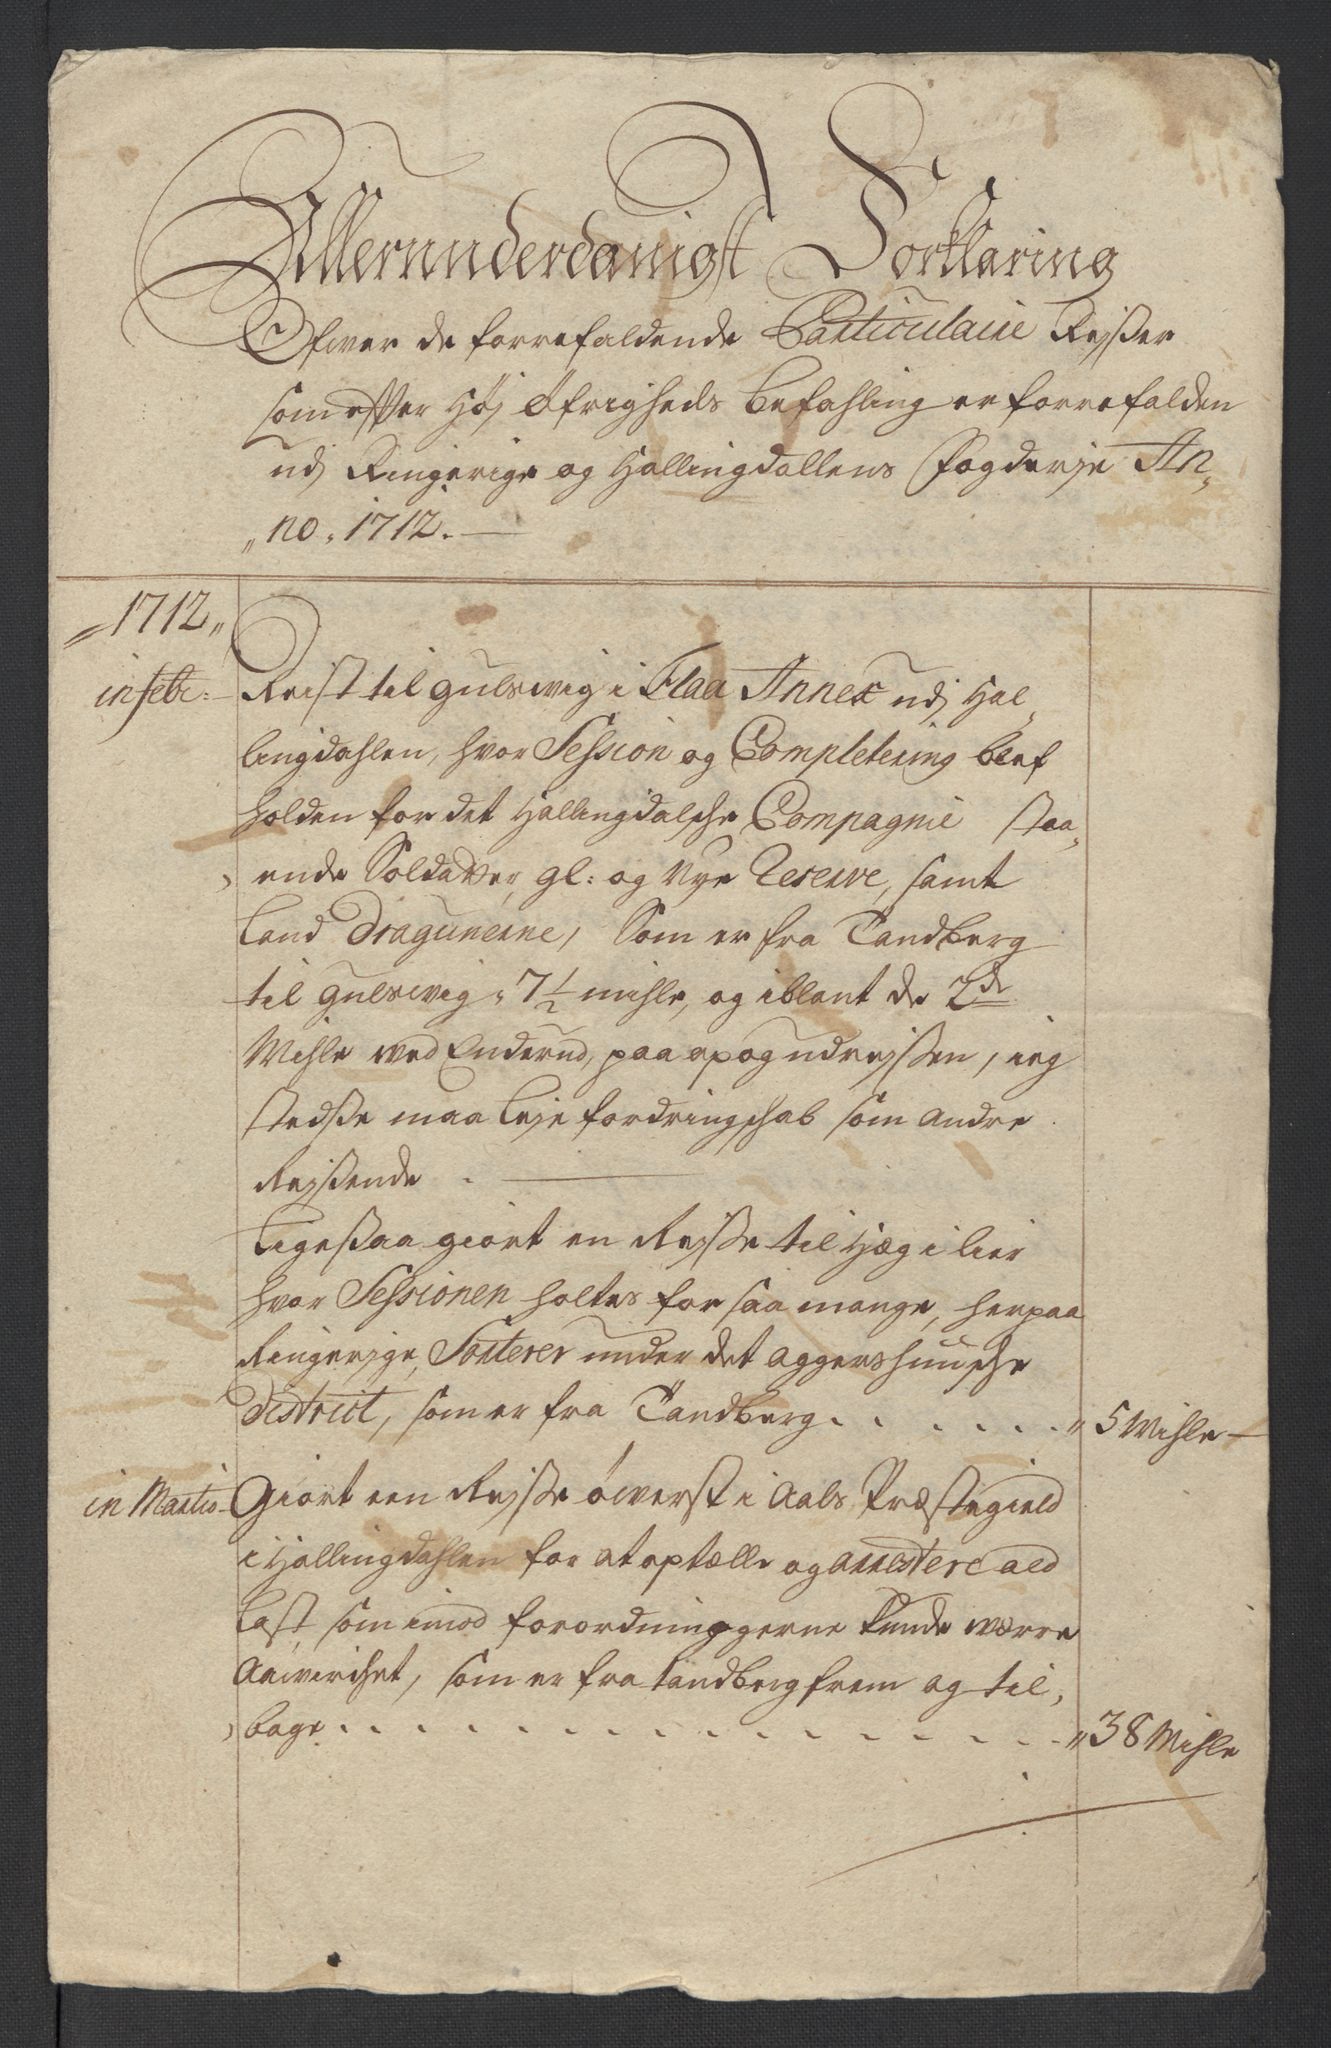 Allerunderdanigst Forklaring
Ofwer de forrefaldende Particulaire Reysser
som effter Høj Øfrigheds befahling er forrefalden
udj Ringerige og Hallingdallens fogderje An„
„no. 1712.
„1712„
in febr: Reist til gulswig i Flaa Annex udj Hal„
lingdahlen, hvor Session og Completering blef
holden for det Hallingdalsche Compagnie staa„
ende Soldatter, gl: og Nye Reserve, samt
Land Dragunerne, Som er fra Tandberg
til gulswig „ 7 1/2 mihle, og iblant de 2de
Mihle ved Enderud, paa op og udreyssen, ieg
stedsse maa leje fordringschab som andre
Reyssende.
Ligessaa giort en Reysse til Hæg i Lier
hvor Sessionen holtes for saa mange, her paa
Ringerige, Sorterer under det Aggershuusche
District, som er fra Tandberg . . . . . . „ 5 Mihle
in Martio Giort een Reysse øwerst i Aals Præstegield
i Hallingdahlen for at optælle og arrestere ald
Last som imod forordninggerne kunde wærre
Aawirchet, som er fra tandberg frem og til„
bage . . . . . . . . . . . . . . . „ 38 Mihle